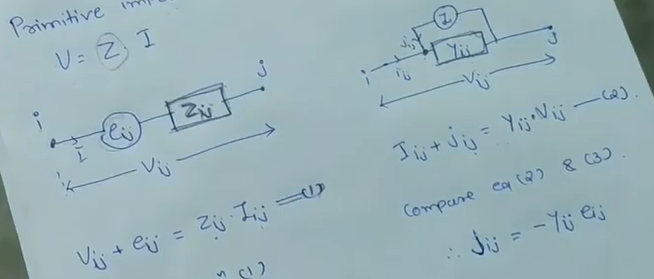 Primitive
V = Z I
i
j
eij
Zij
I
Vij
Vij + eij = Zij . Iij — (1)
(1)
I
jij
Yij
i
iij
j
Vij
Iij + jij = Yij . Vij — (2).
Compare eq (2) & (3).
∴ Jij = -Yij eij